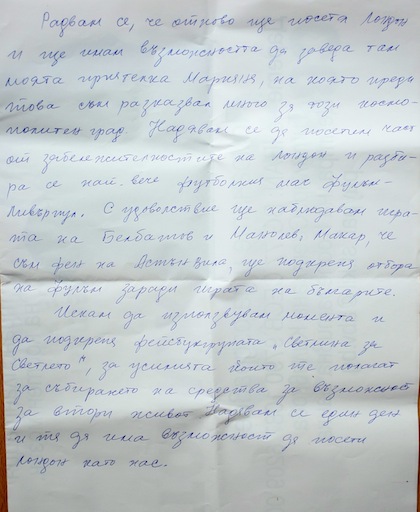 Радвам се, че отново ще посетя Лондон
и ще имам възможността да заведа там
моята приятелка Марияня, на която преди
това съм разказвал много за този космо-
политен град. Надявам се да посетим част
от забележителностите на Лондон и разби-
ра се най-вече футболния мач Фулъм-
Ливърпул. С удоволствие ще наблюдавам игра-
та на Бербатов и Манолев, Макар, че
съм фен на Астън Вила, ще подкрепя отбора
на Фулъм заради играта на българите.
Искам да използвувам момента и
да подкрепя фейсбукгрупата „Светлина за
Светлето", за усилията които те полагат
за събирането на средства за възможност
за втори живот. Надявам се един ден
и тя да има възможност да посети
Лондон като нас.